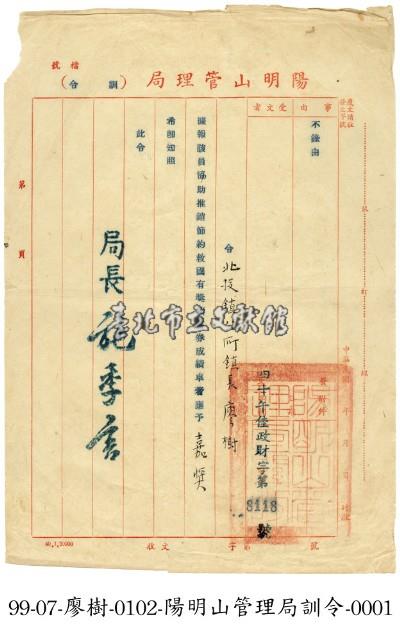 檔號
陽明山管理局（訓令）
事由
受文者
不錄由
令北投鎮公所鎮長廖樹
據報該員協助推銷節約救國有獎儲蓄券成績卓著應予嘉獎
希即知照
此令
局長 施季言
第 頁
政財字第
9118
號
臺北市立文獻館
收文 字第 號
99-07-廖樹-0102-陽明山管理局訓令-0001